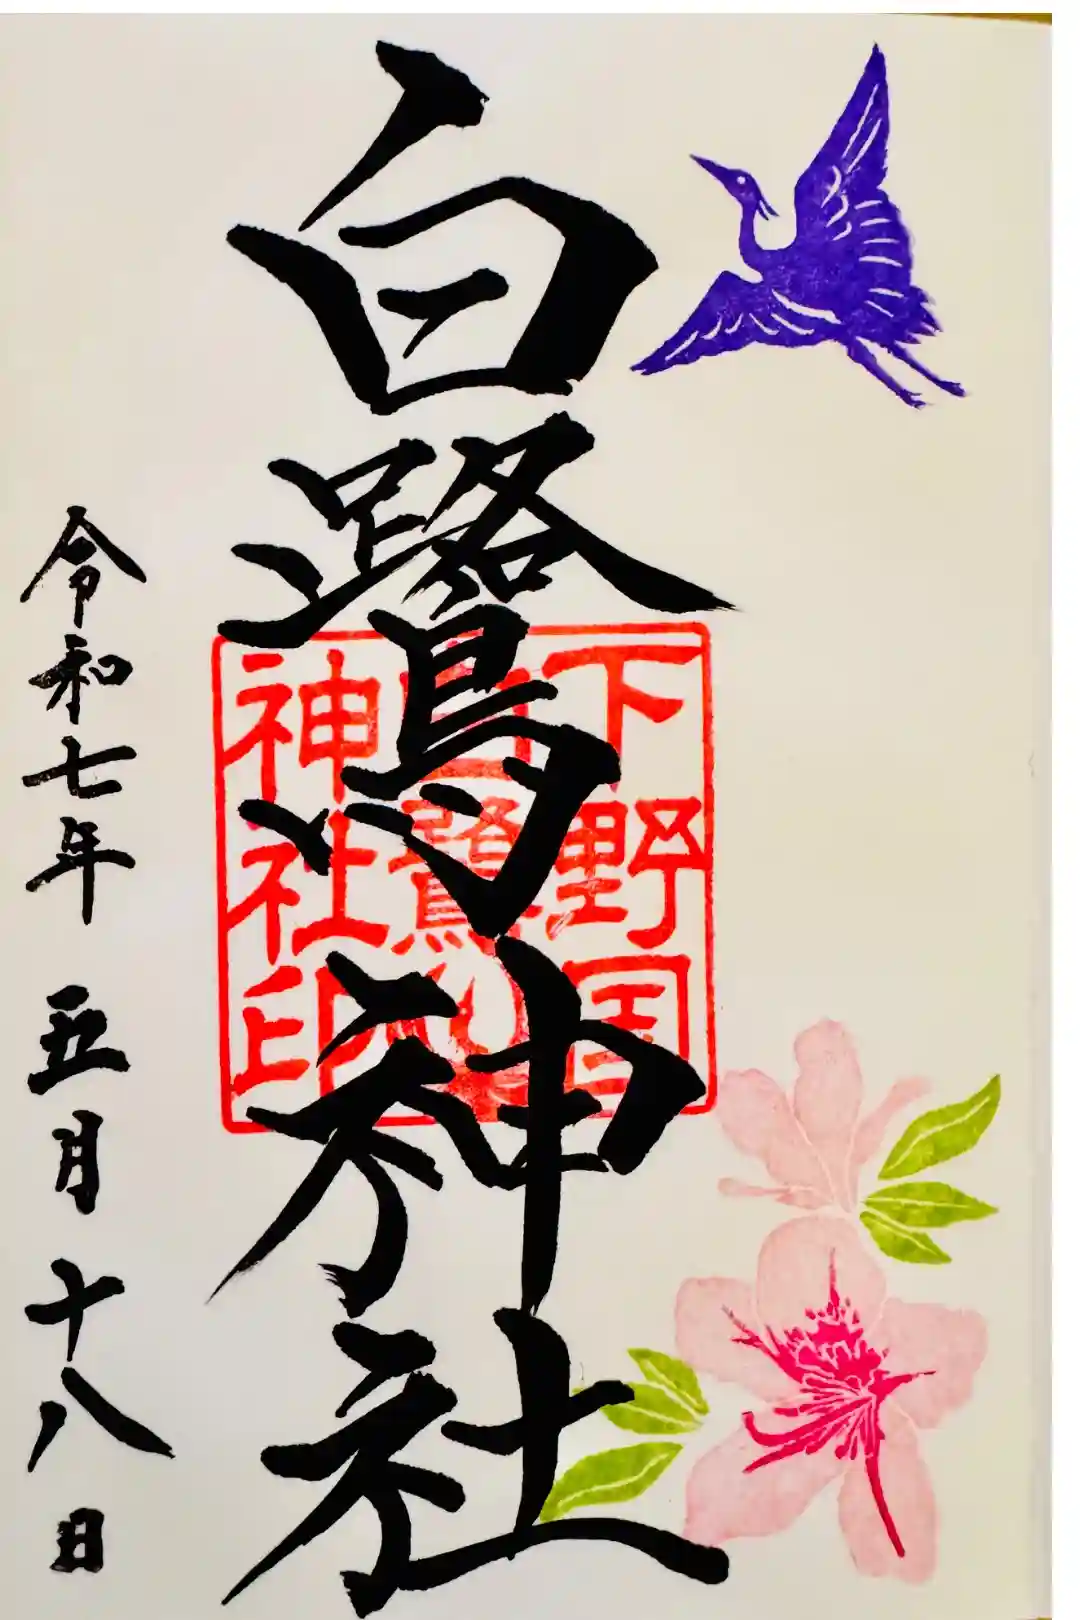 白鷺神社
下野国
白鷺
神社印
令和七年 五月 十八日